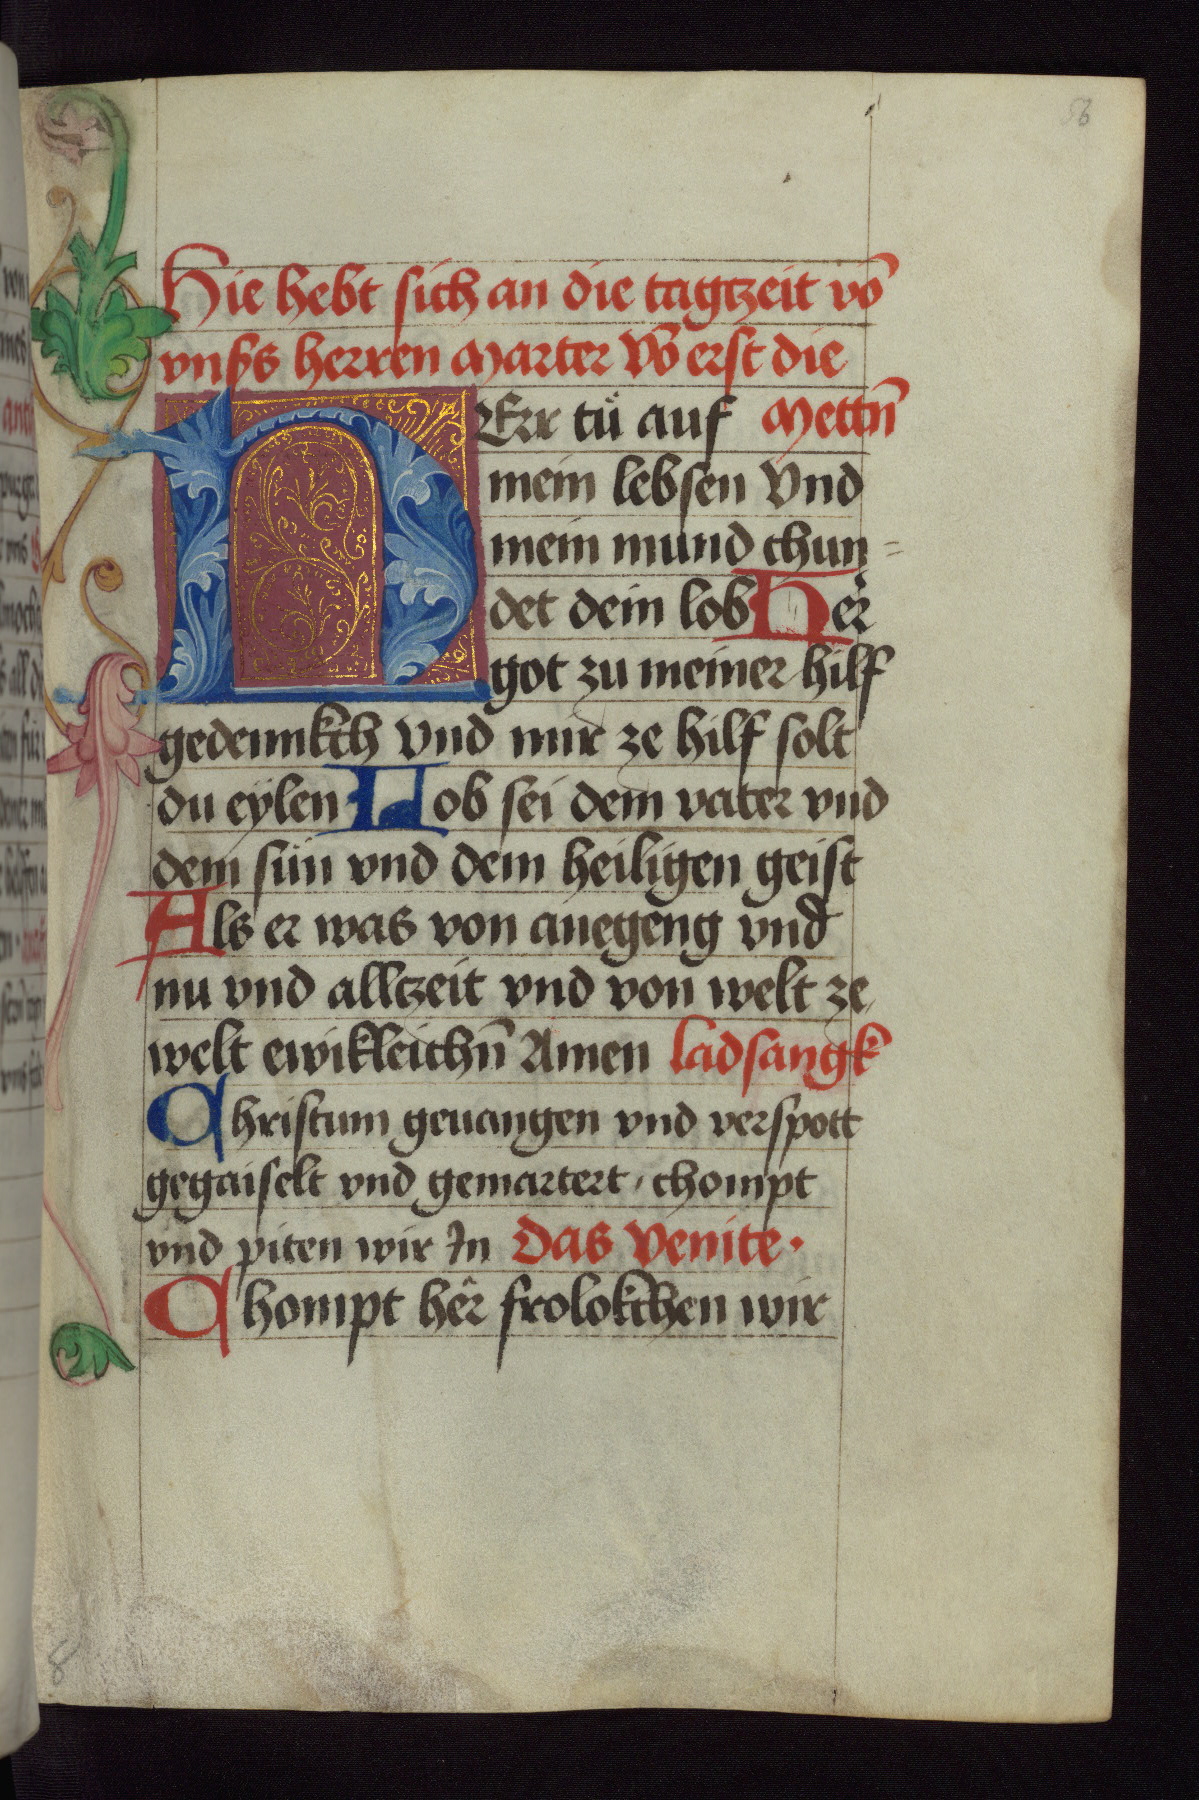 56
Hie hebt sich an die tagtzeit vō
vnßs herren Marter Vō erst die
HErr tů auf Mettn̄
mein lebsen Vnd
mein mund chun=
det dein lob Her̄
got zu meiner hilf
gedennkch vnd mir ze hilf solt
du eylen Lob sei dem vater vnd
dem sůn vnd dem heiligen geist
Als er was von anegeng vnd
nu vnd alltzeit vnd von welt ze
welt ewikleichn̄ Amen ladsangk
Christum geuangen vnd verspott
gegaiselt vnd gemartert · chompt
vnd piten wir In Das Venite ·
Chompt hêr frolokchen wir
8